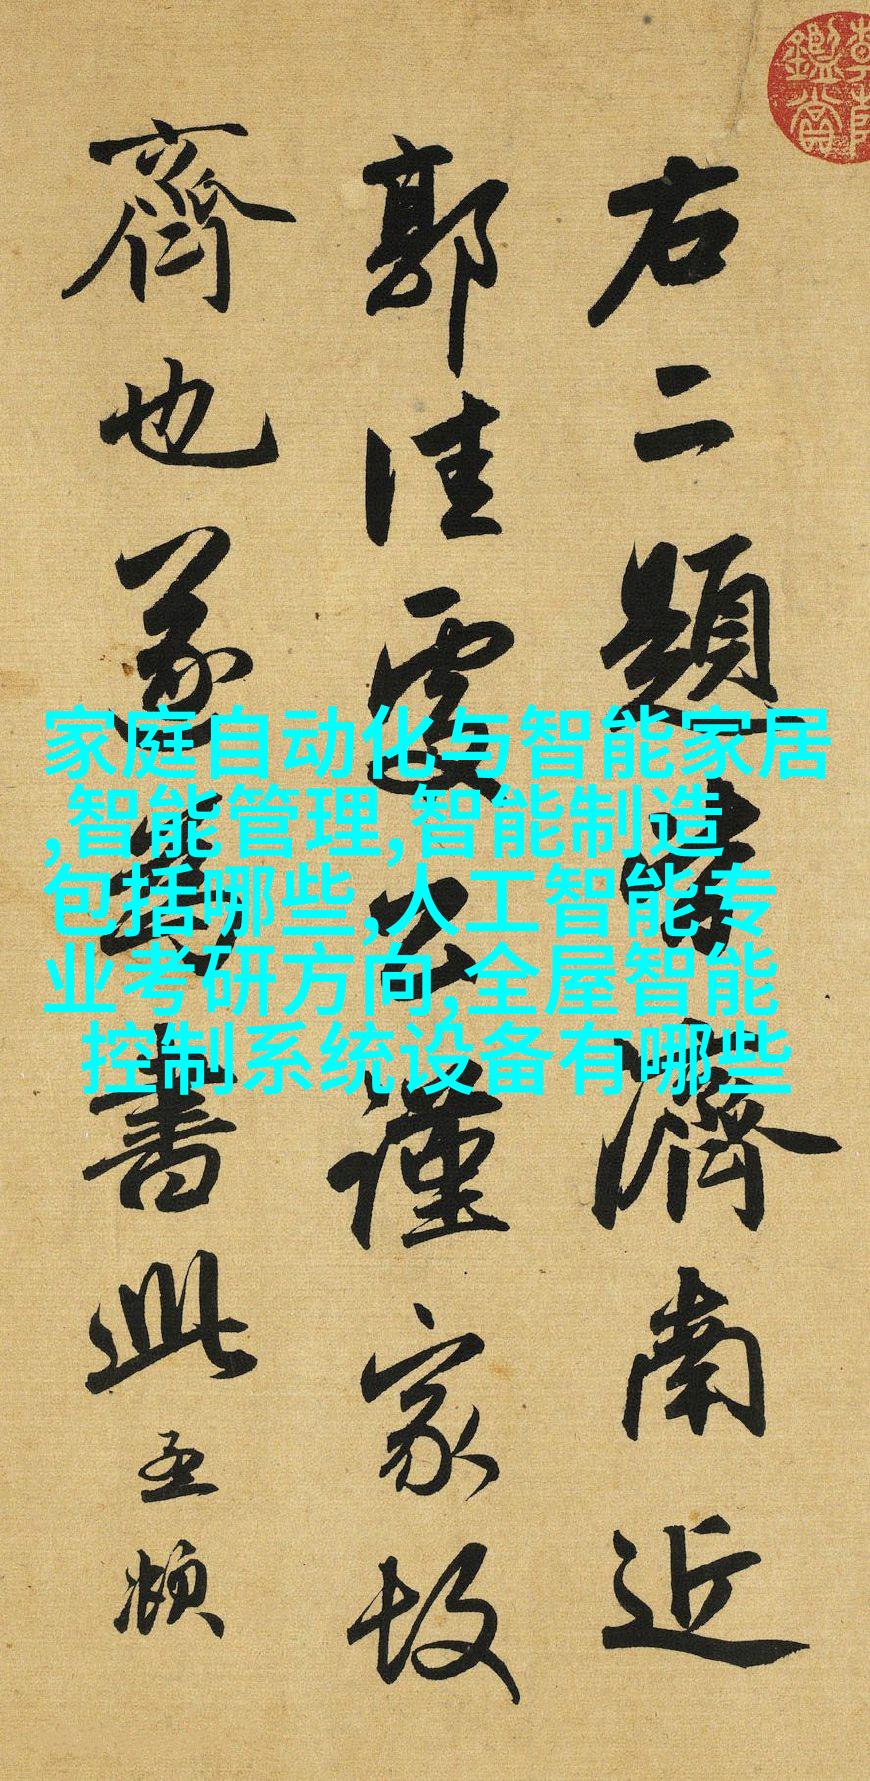 右二題皆濟南近
郭佳處公謹家故
齊也遂為書此孟頫
家庭自动化与智能家居
,智能管理,智能制造
包括哪些,人工智能专
业考研方向,全屋智能
控制系统设备有哪些